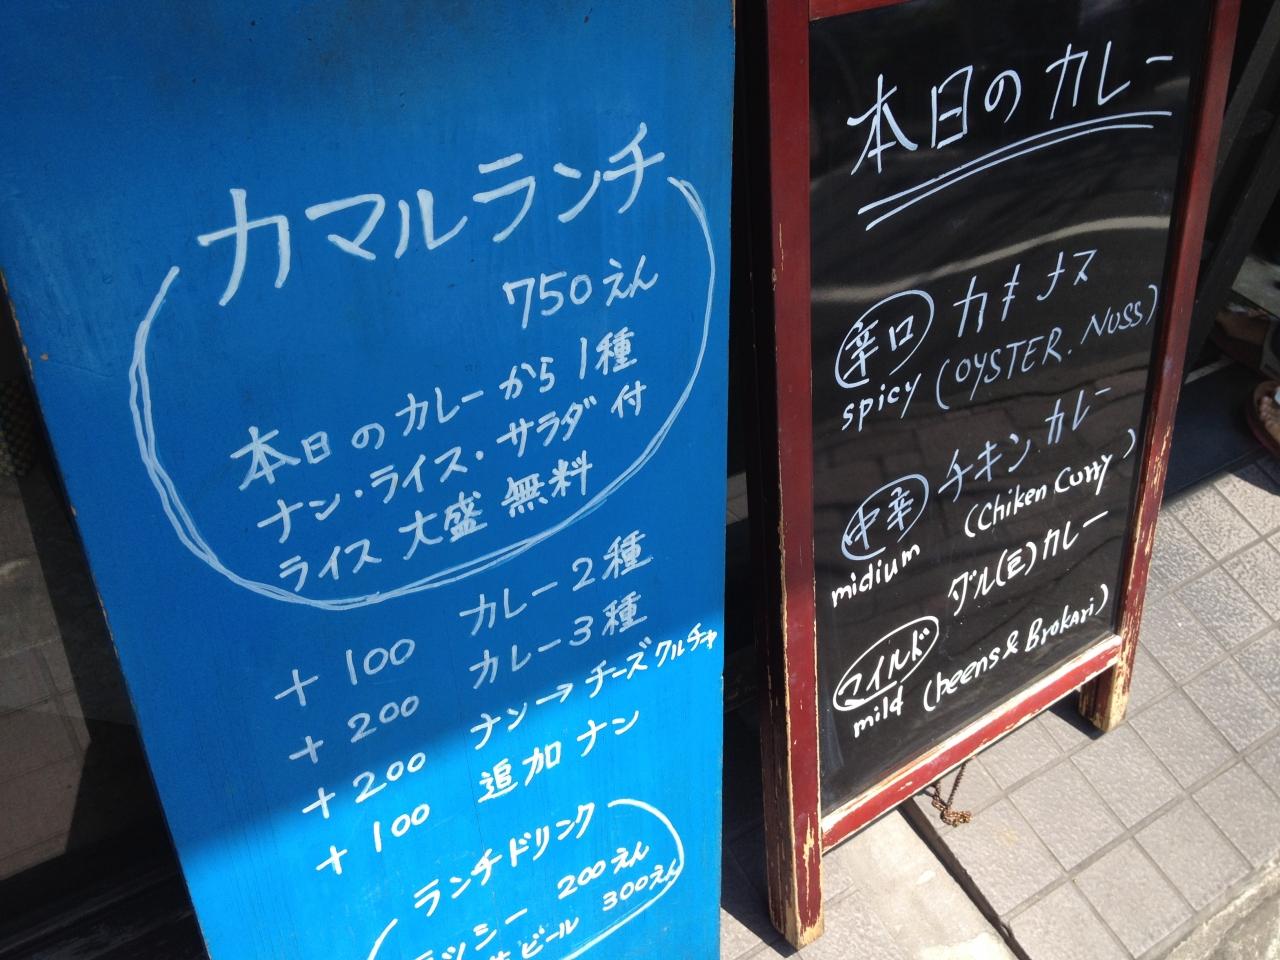 カマルランチ
750えん
本日のカレーから1種
ナン・ライス・サラダ付
ライス大盛無料
+100 カレー2種
+200 カレー3種
+200 ナン→チーズクルチャ
+100 追加ナン
ランチドリンク
ラッシー 200えん
生ビール 300えん
本日のカレー
辛口 カキナス
spicy (OYSTER. NUSS)
中辛 チキンカレー
midium (Chiken Curry)
マイルド ダル(豆)カレー
mild (beens & Brokari)